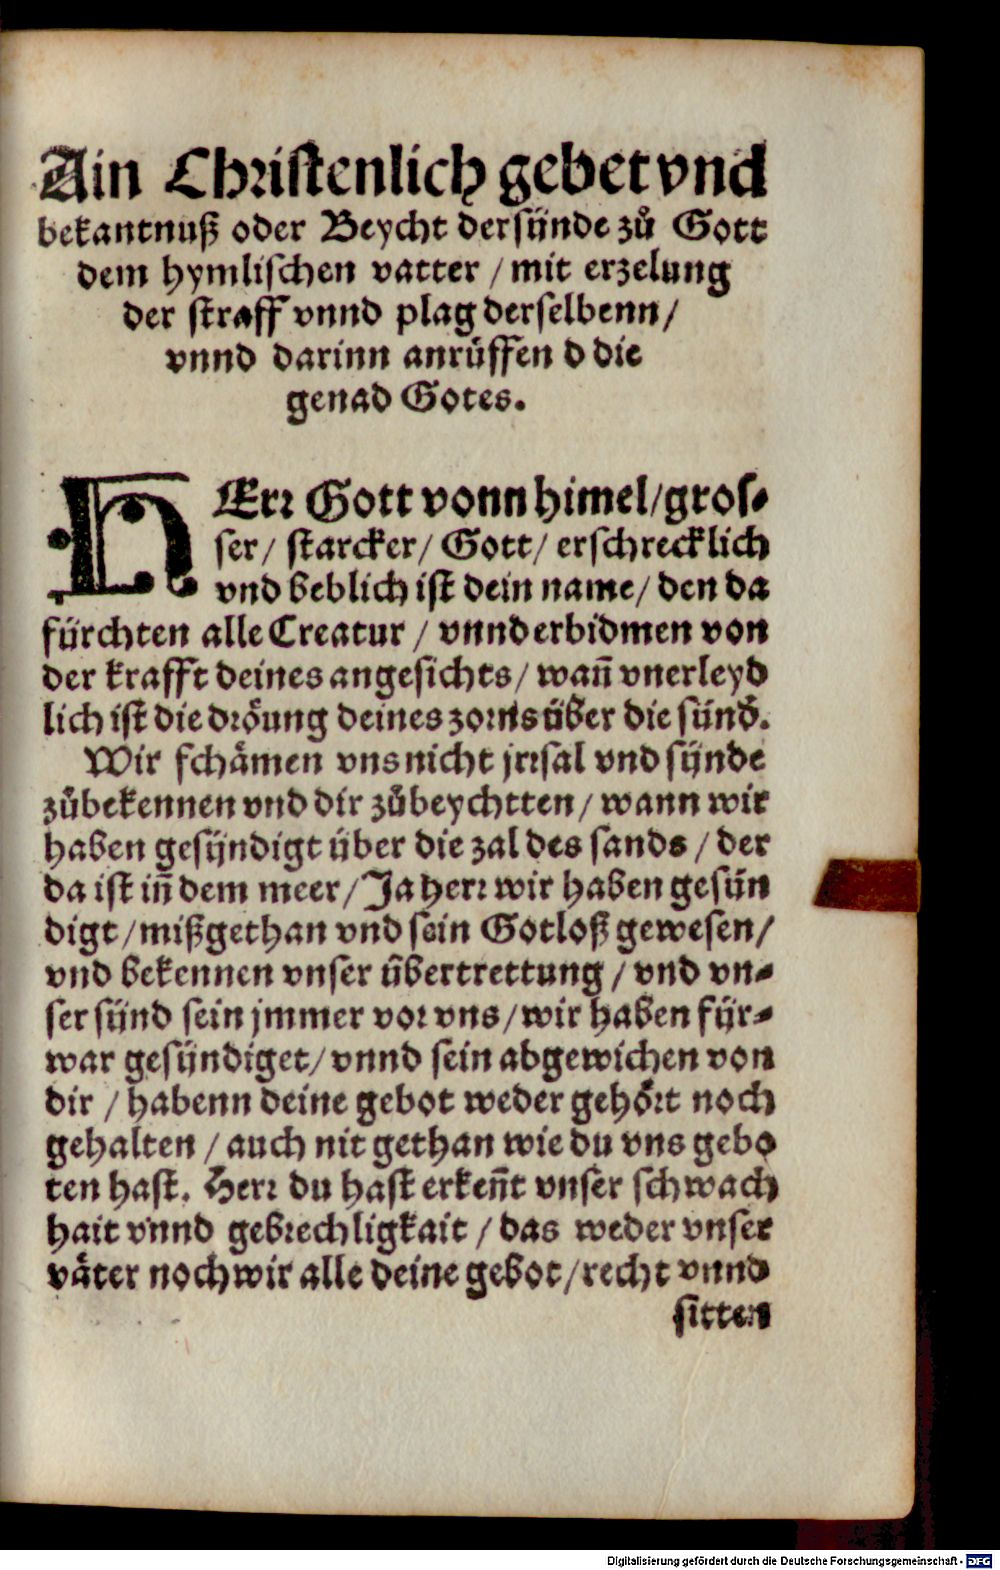 Ain Christenlich gebet vnd
bekantnuß oder Beycht der sünde zů Gott
dem hymlischen vatter / mit erzelung
der straff vnnd plag derselbenn /
vnnd darinn anrüffen d die
genad Gotes.
HErr Gott vonn himel / gros-
ser / starcker / Gott / erschrecklich
vnd beblich ist dein name / den da
fürchten alle Creatur / vnnd erbidmen von
der krafft deines angesichts / wañ vnerleyd
lich ist die dröung deines zorns über die sünd.
Wir schämen vns nicht jrrsal vnd sünde
zůbekennen vnd dir zůbeychtten / wann wir
haben gesündigt über die zal des sands / der
da ist iñ dem meer / Ja herr wir haben gesün
digt / mißgethan vnd sein Gotloß gewesen /
vnd bekennen vnser übertrettung / vnd vn-
ser sünd sein jmmer vor vns / wir haben für-
war gesündiget / vnnd sein abgewichen von
dir / habenn deine gebot weder gehört noch
gehalten / auch nit gethan wie du vns gebo
ten hast. Herr du hast erkeñt vnser schwach
hait vnnd gebrechligkait / das weder vnser
väter noch wir alle deine gebot / recht vnnd
sitten
Digitalisierung gefördert durch die Deutsche Forschungsgemeinschaft - DFG